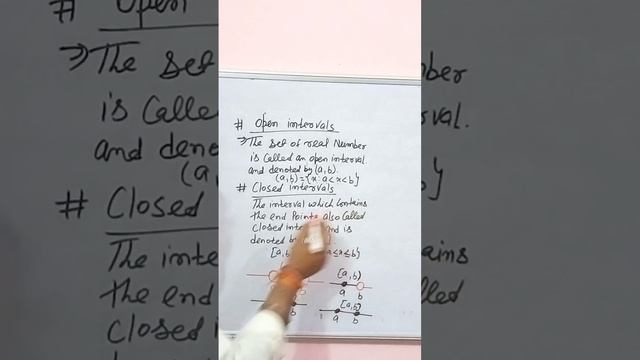 # Open intervals
⇒ The set of real Number
is Called an open interval.
and denoted by (a, b).
(a, b) = {x : a < x < b}
# Closed intervals
The interval which Contains
the end Points also Called
Closed and is
denoted by
[a, b ≤ x ≤ b}
[a, b)
a b
b
[a, b]
a b